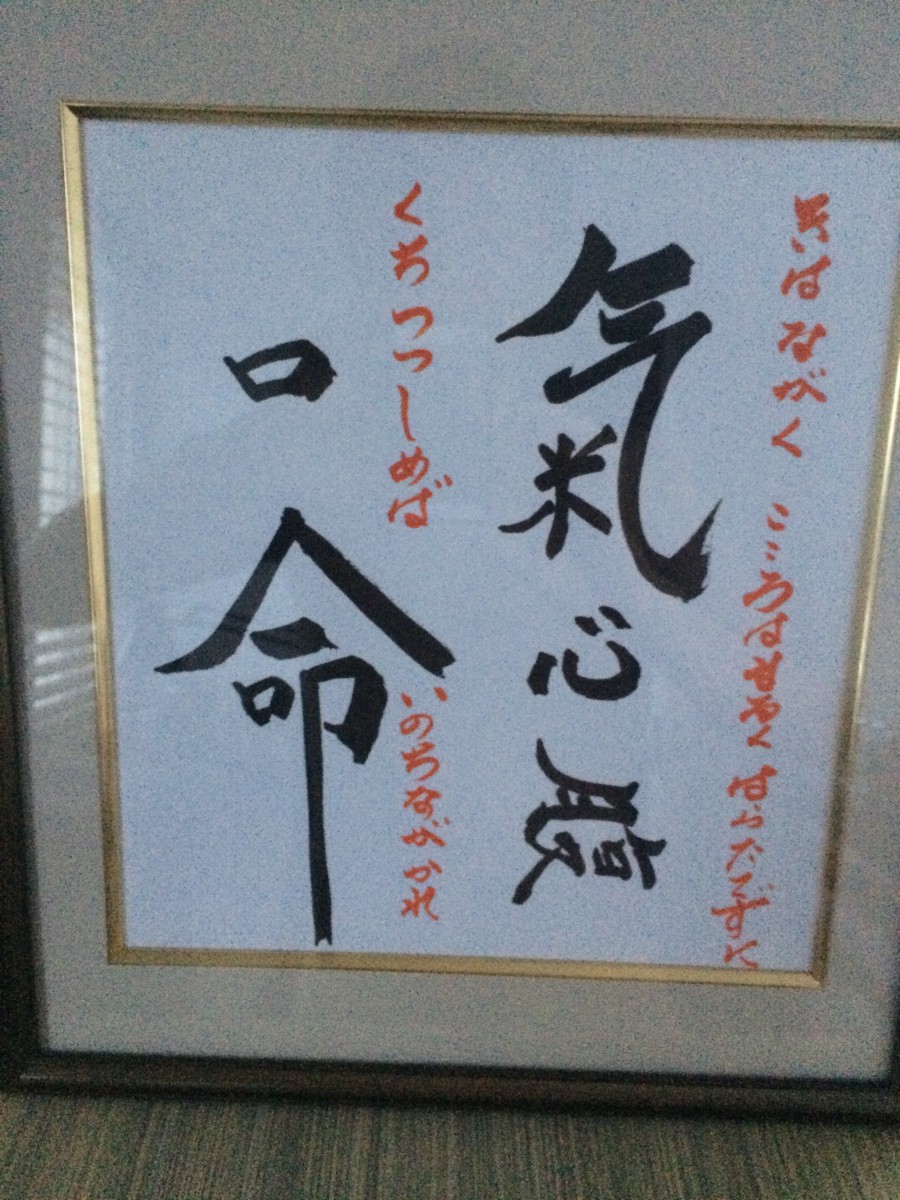 きはながく こころはまるく はらたてずに
氣心腹
くちつつしめば いのちながかれ
口命